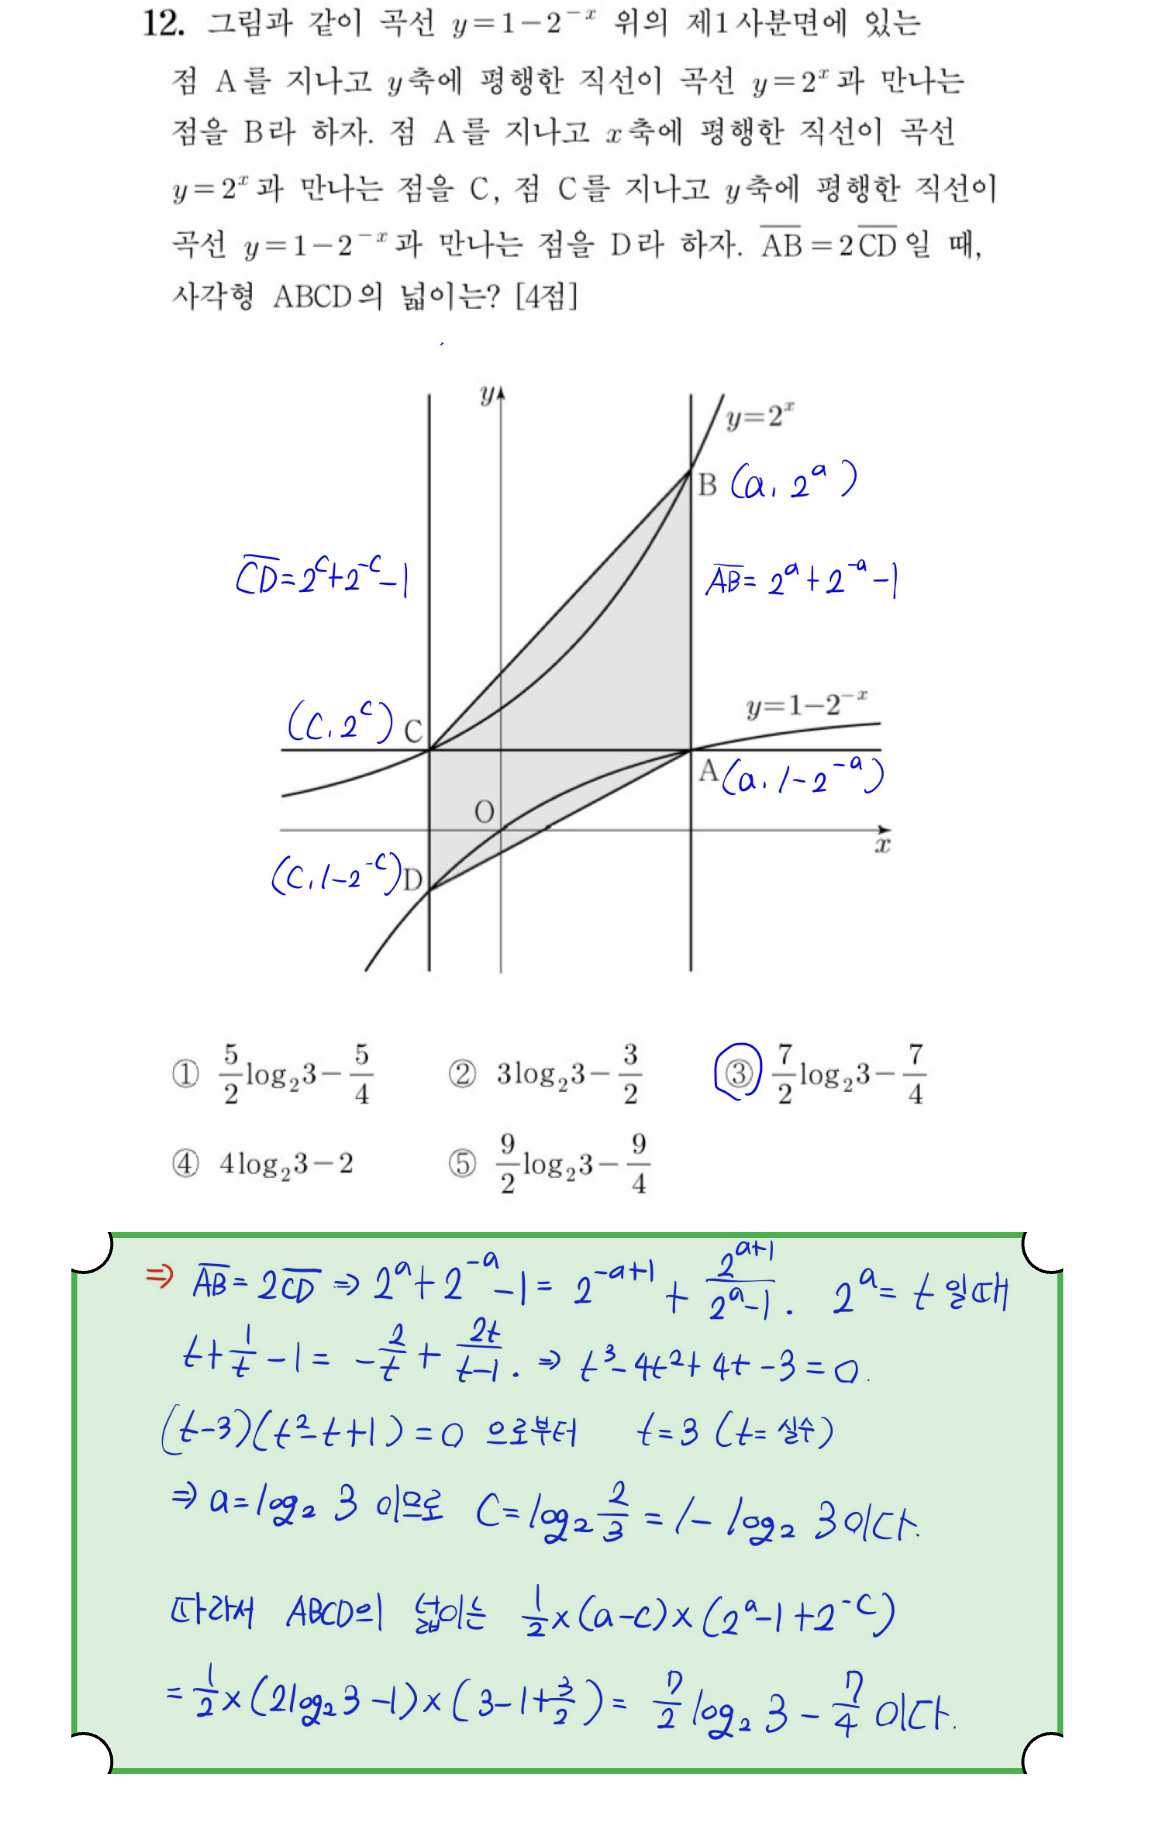 12. 그림과 같이 곡선 y=1-2^{-x} 위의 제1사분면에 있는
점 A를 지나고 y축에 평행한 직선이 곡선 y=2^x과 만나는
점을 B라 하자. 점 A를 지나고 x축에 평행한 직선이 곡선
y=2^x과 만나는 점을 C, 점 C를 지나고 y축에 평행한 직선이
곡선 y=1-2^{-x}과 만나는 점을 D라 하자. \overline{AB}=2\overline{CD}일 때,
사각형 ABCD의 넓이는? [4점]
y
y=2^x
B (a, 2^a)
\overline{CD}=2^c+2^{-c}-1
\overline{AB}=2^a+2^{-a}-1
y=1-2^{-x}
(c, 2^c) C
A (a, 1-2^{-a})
O
x
(c, 1-2^{-c}) D
① \frac{5}{2}log_2 3-\frac{5}{4} ② 3log_2 3-\frac{3}{2} ③ \frac{7}{2}log_2 3-\frac{7}{4}
④ 4log_2 3-2 ⑤ \frac{9}{2}log_2 3-\frac{9}{4}
⇒ \overline{AB}=2\overline{CD} ⇒ 2^a+2^{-a}-1=2^{-a+1}+\frac{2^{a+1}}{2^a-1}. 2^a=t일때
t+\frac{1}{t}-1=-\frac{2}{t}+\frac{2t}{t-1}. ⇒ t^3-4t^2+4t-3=0.
(t-3)(t^2-t+1)=0 으로부터 t=3 (t=실수)
⇒ a=log_2 3 이므로 C=log_2 \frac{2}{3}=1-log_2 3이다.
따라서 ABCD의 넓이는 \frac{1}{2}×(a-c)×(2^a-1+2^{-c})
=\frac{1}{2}×(2log_2 3-1)×(3-1+\frac{3}{2})=\frac{7}{2}log_2 3-\frac{7}{4}이다.